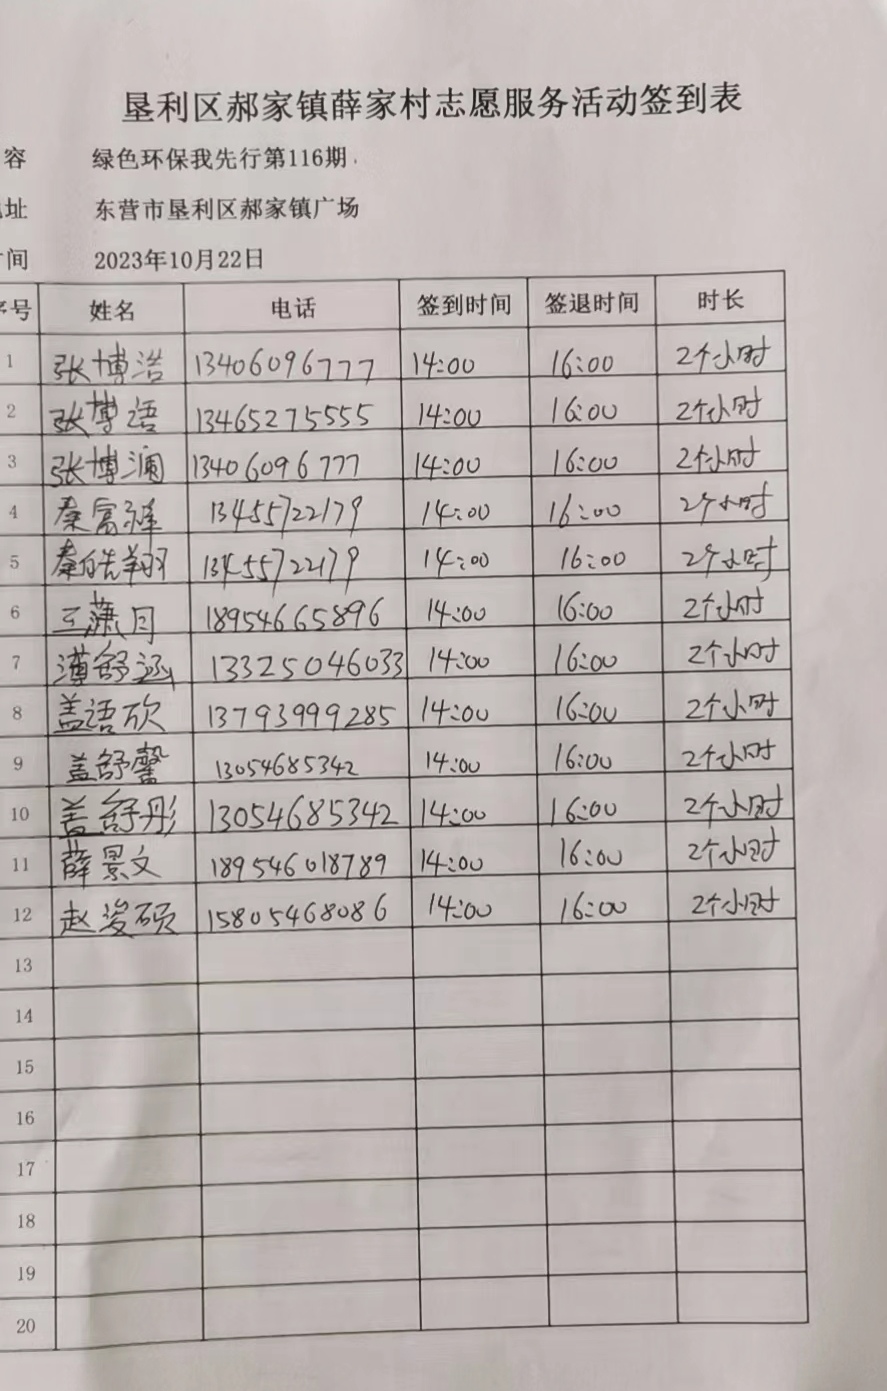 垦利区郝家镇薛家村志愿服务活动签到表
容 绿色环保我先行第116期
址 东营市垦利区郝家镇广场
间 2023年10月22日
序号 姓名 电话 签到时间 签退时间 时长
1 张博浩 13406096777 14:00 16:00 2个小时
2 张博语 13465275555 14:00 16:00 2个小时
3 张博澜 13406096777 14:00 16:00 2个小时
4 秦富祥 13455722179 14:00 16:00 2个小时
5 秦皓翔 13455722179 14:00 16:00 2个小时
6 王潇月 18954665896 14:00 16:00 2个小时
7 薄舒涵 13325046033 14:00 16:00 2个小时
8 盖语欣 13793999285 14:00 16:00 2个小时
9 盖舒馨 13054685342 14:00 16:00 2个小时
10 盖舒彤 13054685342 14:00 16:00 2个小时
11 薛景文 189546018789 14:00 16:00 2个小时
12 赵浚硕 15805468086 14:00 16:00 2个小时
13
14
15
16
17
18
19
20